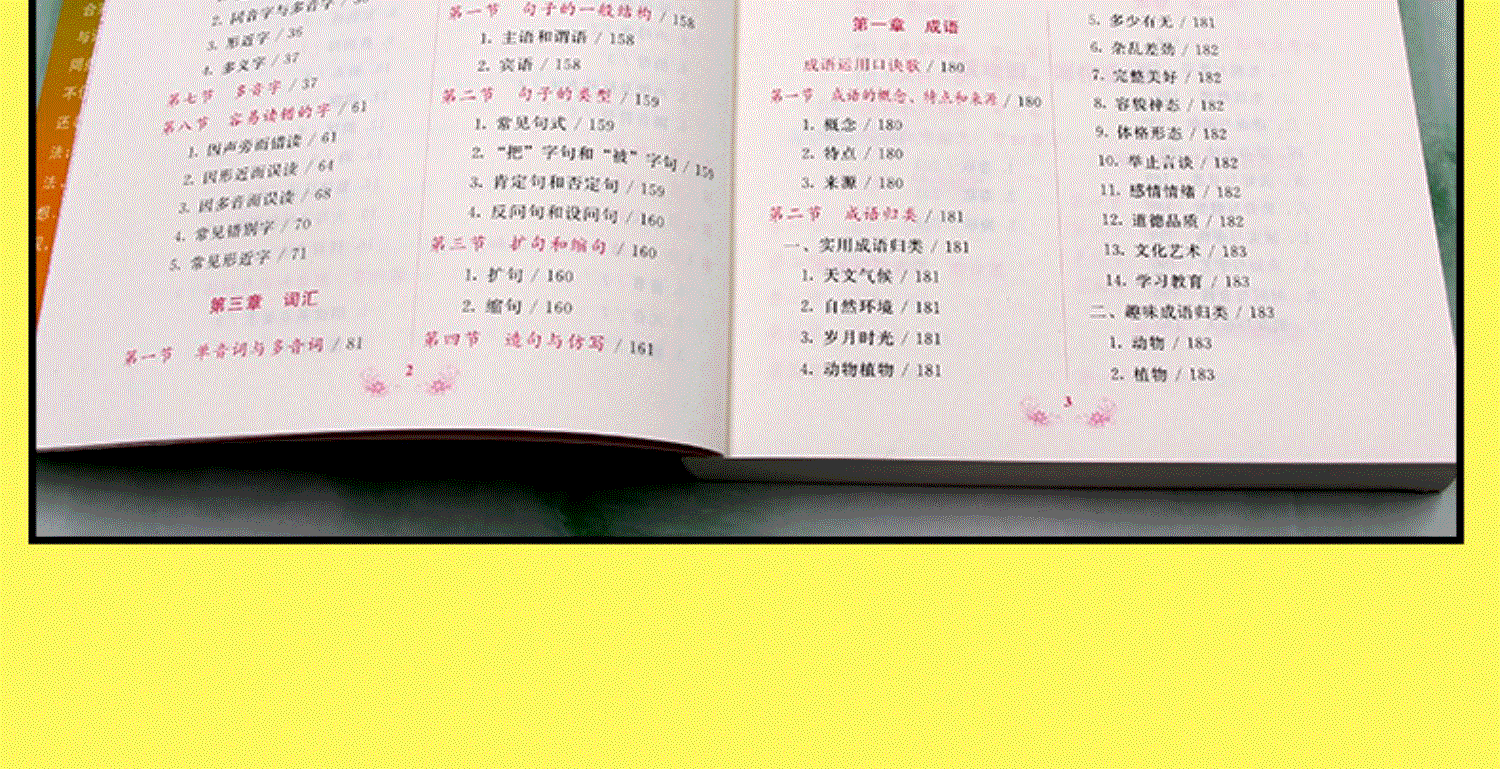 2. 同音字与多音字 / 36
3. 形近字 / 36
4. 多义字 / 37
第七节 多音字 / 37
第八节 容易读错的字 / 61
1. 因声旁而错读 / 61
2. 因形近而误读 / 64
3. 因多音而误读 / 68
4. 常见错别字 / 70
5. 常见形近字 / 71
第三章 词汇
第一节 单音词与多音词 / 81
第一节 句子的一般结构 / 158
1. 主语和谓语 / 158
2. 宾语 / 158
第二节 句子的类型 / 159
1. 常见句式 / 159
2. “把”字句和“被”字句 / 159
3. 肯定句和否定句 / 159
4. 反问句和设问句 / 160
第三节 扩句和缩句 / 160
1. 扩句 / 160
2. 缩句 / 160
第四节 造句与仿写 / 161
2
第一章 成语
成语运用口诀歌 / 180
第一节 成语的概念、特点和来源 / 180
1. 概念 / 180
2. 特点 / 180
3. 来源 / 180
第二节 成语归类 / 181
一、实用成语归类 / 181
1. 天文气候 / 181
2. 自然环境 / 181
3. 岁月时光 / 181
4. 动物植物 / 181
5. 多少有无 / 181
6. 杂乱差劲 / 182
7. 完整美好 / 182
8. 容貌神态 / 182
9. 体格形态 / 182
10. 举止言谈 / 182
11. 感情情绪 / 182
12. 道德品质 / 182
13. 文化艺术 / 183
14. 学习教育 / 183
二、趣味成语归类 / 183
1. 动物 / 183
2. 植物 / 183
3